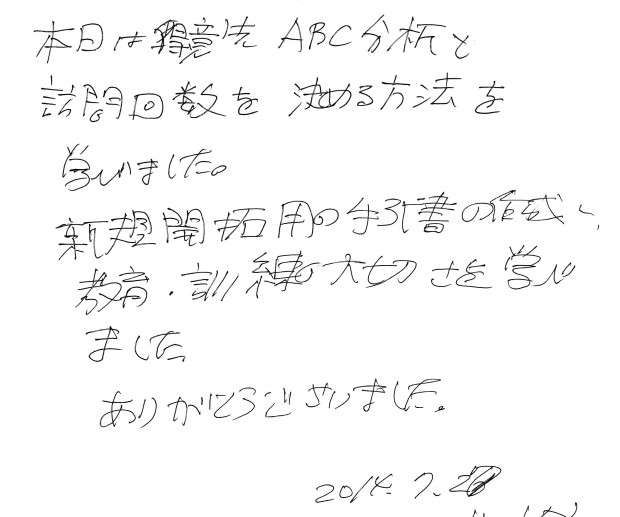 本日は得意先 ABC分析と
訪問回数を 決める方法を
学びました。
新規開拓用の手引書の作成と、
教育・訓練の大切さを学び
ました
ありがとうございました。
2014.7.